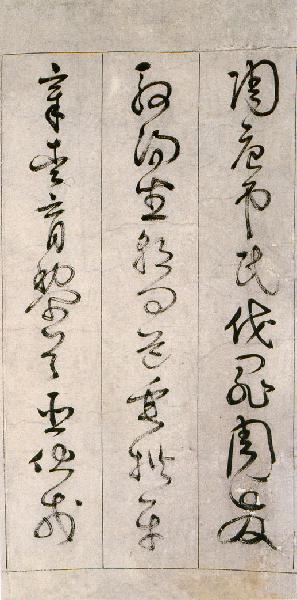 陶唐弔民伐罪周發
殷湯坐朝問道垂拱平
章愛育黎首臣伏戎